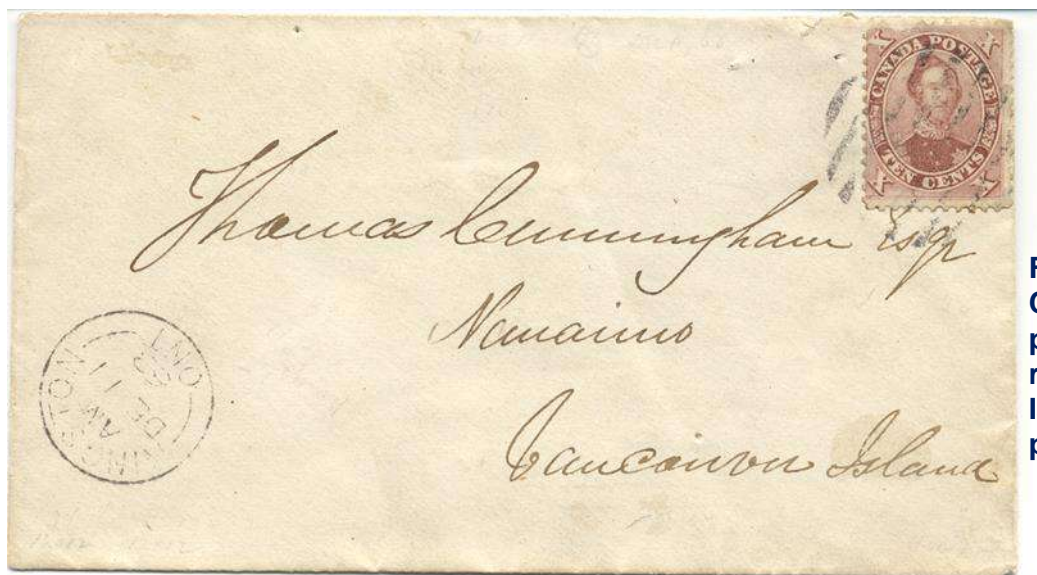 X CANADA POSTAGE X
X TEN CENTS X
Thomas Cunningham Esqr
Nanaimo
Vancouver Island
KINGSTON ONT
AM
DE 11